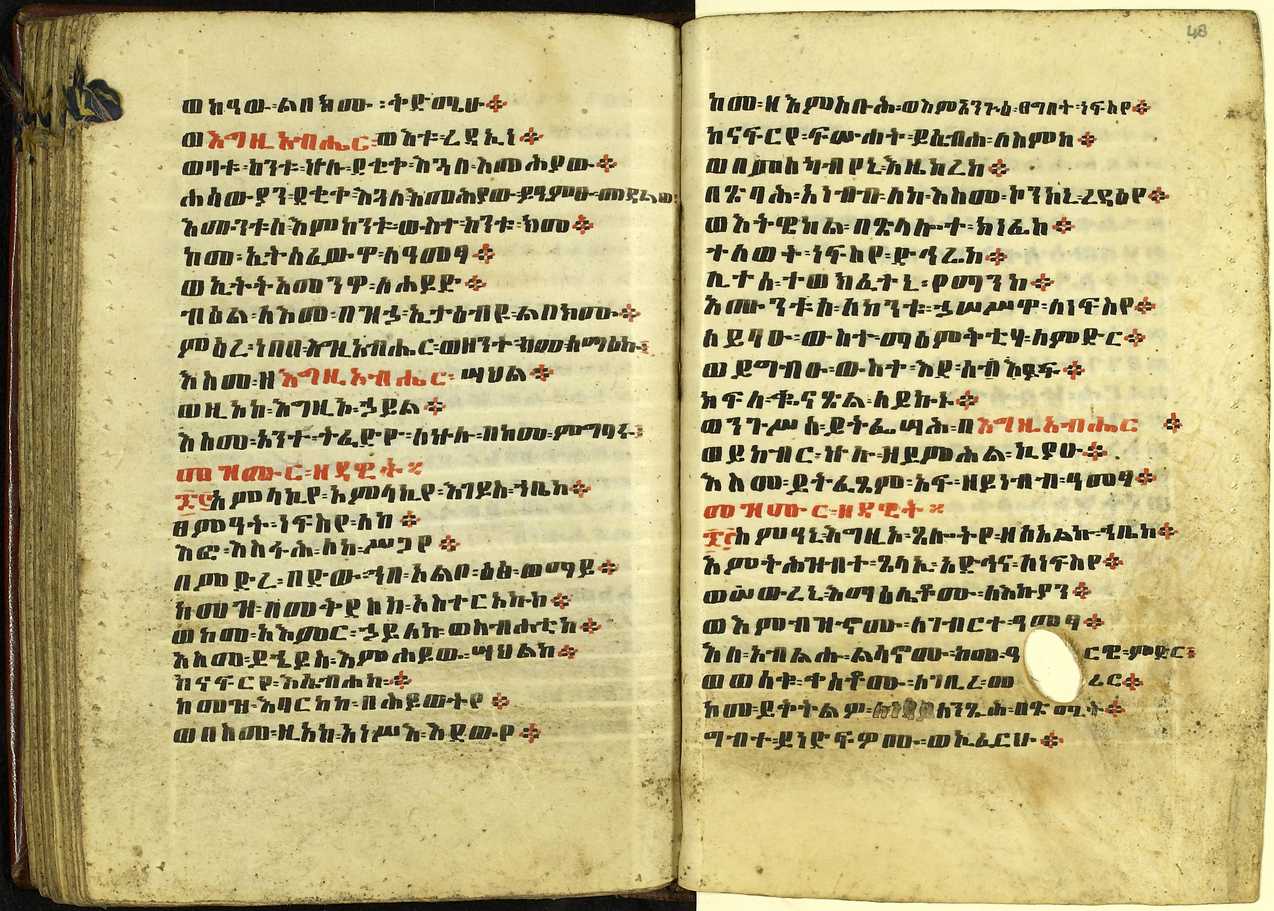 ወከዓው፡ልበክሙ፡ቅድሜሁ።
ወእግዚአብሔር፡ውእቱ፡ረዳኢነ።
ወባቱ፡ከንቱ፡ኵሉ፡ደቂቀ፡እጓለ፡እመሕያው።
ሐሳውያን፡ደቂቀ፡እጓለ፡እመሕያው፡ይዔምፁ፡መዳልወ፡
እሙንቱሰ፡እምከንቱ፡ውስተ፡ከንቱ፡ክመ።
ከመ፡ኢትሰፈውዋ፡ለዓመፃ።
ወኢትትአመንዋ፡ለሐይድ።
ብዕል፡ለእመ፡በዝኃ፡ኢታዕብዩ፡ልበክሙ።
ምዕረ፡ነበበ፡እግዚአብሔር፡ወዘንተ፡ከመ፡ሰማዕኩ፡
እስመ፡ዘእግዚአብሔር፡ሣህል።
ወዚአከ፡እግዚኦ፡ኃይል።
እስመ፡አንተ፡ትፈድዮ፡ለኵሉ፡በከመ፡ምግባሩ፡
መዝሙር፡ዘዳዊት፨
፷፪አምላኪየ፡አምላኪየ፡እገይስ፡ኀቤከ።
ፀምዓት፡ነፍስየ፡ለከ።
እፎ፡እስፋሕ፡ለከ፡ሥጋየ።
በምድረ፡በድው፡ኀበ፡አልቦ፡ዕፅ፡ወማይ።
ከመዝ፡በመቅደስከ፡አስተርአኩከ።
ወከመ፡አእምር፡ኃይለከ፡ወስብሐቲከ።
እስመ፡ይኄይስ፡እምሐይው፡ሣህልከ።
ከናፍርየ፡እኤብሐከ።
ከመዝ፡እባርከከ፡በሕይወትየ።
ወበስመ፡ዚአከ፡አነሥእ፡እደውየ።
48
ከመ፡ዘእምስቡሕ፡ወእምአንጕዕ፡ፀግበት፡ነፍስየ።
ከናፍርየ፡ፍሡሐት፡ይሴብሐ፡ለስምከ።
ወበምስካብየኒ፡እዜከረከ።
በጽባሕ፡እነብብ፡ለከ፡እስመ፡ኮንከኒ፡ረዳዕየ።
ወእትዌከል፡በጽላሎተ፡ክነፊከ።
ተለወት፡ነፍስየ፡ድኅሬከ።
ሊተሰ፡ተወክፈትኒ፡የማንከ።
እሙንቱሰ፡ለከንቱ፡ኃሠሥዋ፡ለነፍስየ።
ለይባኡ፡ውስተ፡ማዕምቅቲሃ፡ለምድር።
ወይግብኡ፡ውስተ፡እደ፡ሰብእ፡ኲናት።
ክፍለ፡ቈናጽል፡ለይኩኑ።
ወንጉሥሰ፡ይትፌሣሕ፡በእግዚአብሔር።
ወይከብር፡ኵሉ፡ዘይምሕል፡ቦቱ።
እስመ፡ይትፈፀም፡አፍ፡ዘይነብብ፡ዓመፃ።
መዝሙር፡ዘዳዊት፨
፷፫ስምዓኒ፡እግዚኦ፡ጸሎትየ፡ዘሰአልኩ፡ኀቤከ።
እምትሕዝብተ፡ጸላኢ፡አድኅና፡ለነፍስየ።
ወሠውረኒ፡እማዕሌቶሙ፡ለእኩያን።
ወእምብዝኖሙ፡ለገብርተ፡ዓመፃ።
እለ፡አብልሑ፡ልሳኖሙ፡ከመ፡ዓርዌ፡ምድር፡
ወወሰቁ፡ቀስቶሙ፡ለገቢረ፡መሪር።
ከመ፡ይቅትልዎ፡ለንጹሕ፡በጽሚት።
ግብተ፡ይነድፍዎሙ፡ወኢፈርሁ።